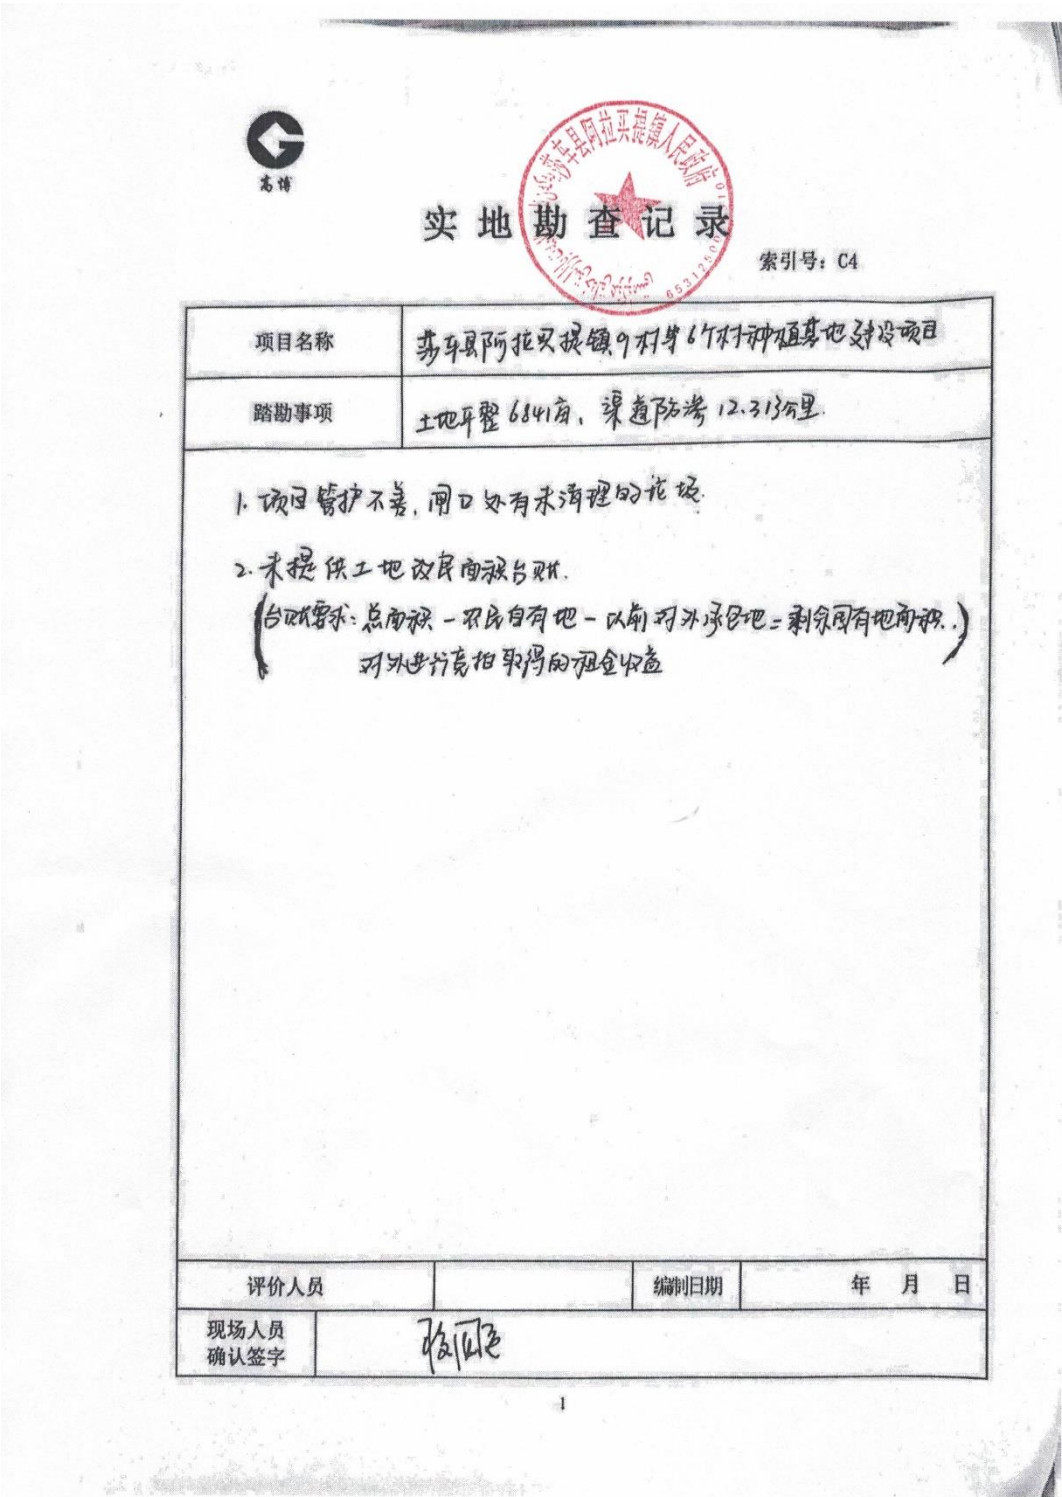 高博
莎车县阿拉买提镇人民政府
实地勘查记录
索引号：C4
项目名称 莎车县阿拉买提镇9村等6个村种植基地建设项目
踏勘事项 土地平整6841亩，渠道防渗12.313公里.
1. 项目管护不善，闸口处有未清理的垃圾.
2. 未提供土地改良面积台账.
(台账要求：总面积－农民自有地－以前对外承包地＝剩余国有地面积..)
对外进行竞拍取得的租金收益
评价人员 编制日期 年 月 日
现场人员
确认签字
1